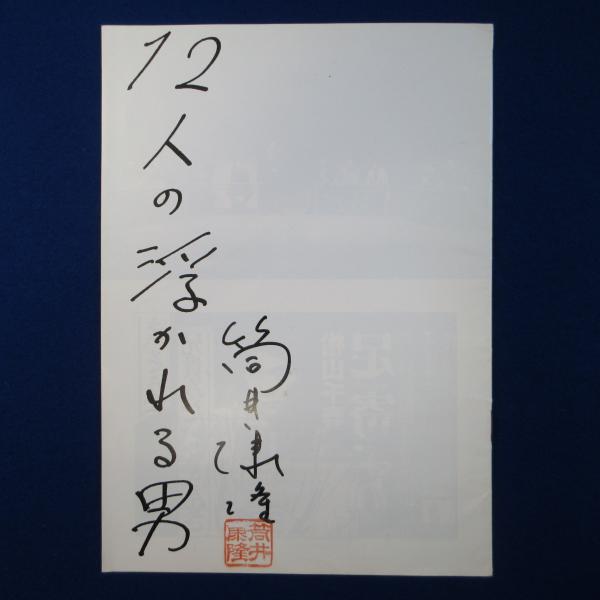 12人の浮かれる男
筒井康隆
筒井
康隆